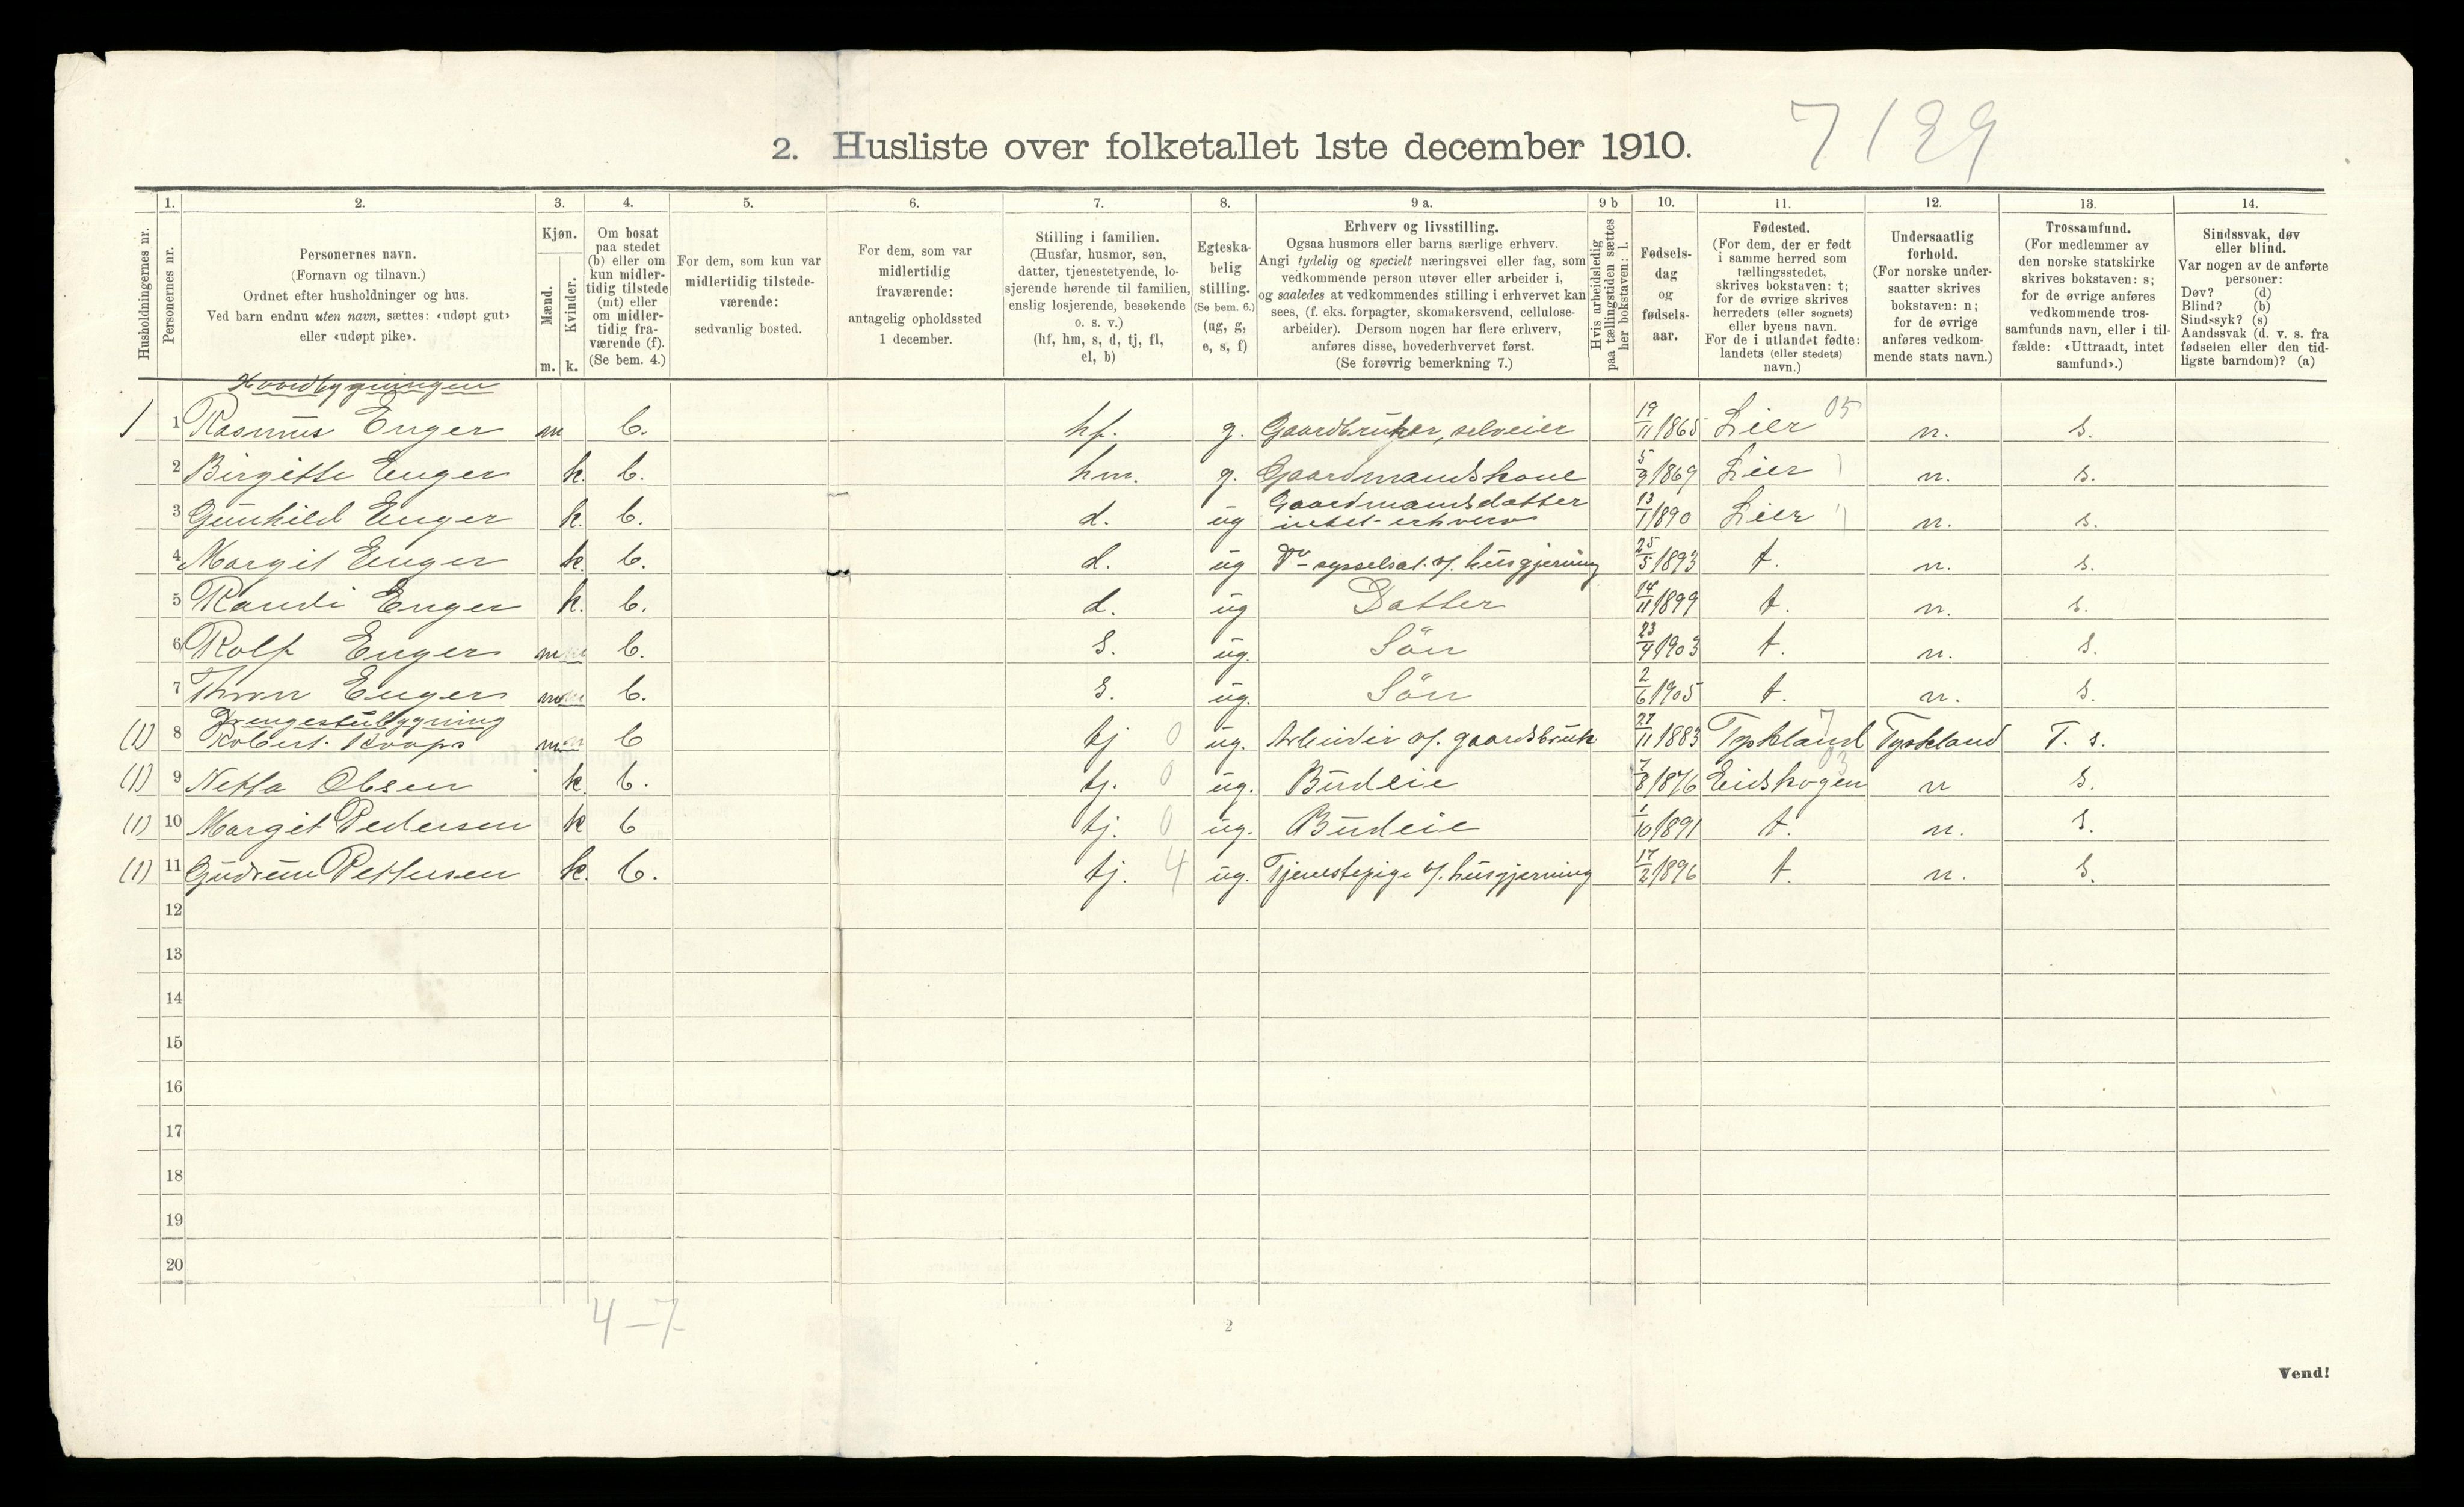 2. Husliste over folketallet 1ste december 1910.
7139
Husholdningernes nr.
1. Personernes nr.
2. Personernes navn.
(Fornavn og tilnavn.)
Ordnet efter husholdninger og hus.
Ved barn endnu uten navn, sættes: «udøpt gut»
eller «udøpt pike».
3. Kjøn.
Mænd. m.
Kvinder. k.
4. Om bosat
paa stedet
(b) eller om
kun midler-
tidig tilstede
(mt) eller
om midler-
tidig fra-
værende (f).
(Se bem. 4.)
5. For dem, som kun var
midlertidig tilstede-
værende:
sedvanlig bosted.
6. For dem, som var
midlertidig
fraværende:
antagelig opholdssted
1 december.
7. Stilling i familien.
(Husfar, husmor, søn,
datter, tjenestetyende, lo-
sjerende hørende til familien,
enslig losjerende, besøkende
o. s. v.)
(hf, hm, s, d, tj, fl,
el, b)
8. Egteska-
belig
stilling.
(Se bem. 6.)
(ug, g,
e, s, f)
9 a. Erhverv og livsstilling.
Ogsaa husmors eller barns særlige erhverv.
Angi tydelig og specielt næringsvei eller fag, som
vedkommende person utøver eller arbeider i,
og saaledes at vedkommendes stilling i erhvervet kan
sees, (f. eks. forpagter, skomakersvend, cellulose-
arbeider). Dersom nogen har flere erhverv,
anføres disse, hovederhvervet først.
(Se forøvrig bemerkning 7.)
9 b Hvis arbeidsledig
paa tællingstiden sættes
her bokstaven: l.
10. Fødsels-
dag
og
fødsels-
aar.
11. Fødested.
(For dem, der er født
i samme herred som
tællingsstedet,
skrives bokstaven: t;
for de øvrige skrives
herredets (eller sognets)
eller byens navn.
For de i utlandet fødte:
landets (eller stedets)
navn.)
12. Undersaatlig
forhold.
(For norske under-
saatter skrives
bokstaven: n;
for de øvrige
anføres vedkom-
mende stats navn.)
13. Trossamfund.
(For medlemmer av
den norske statskirke
skrives bokstaven: s;
for de øvrige anføres
vedkommende tros-
samfunds navn, eller i til-
fælde: «Uttraadt, intet
samfund».)
14. Sindssvak, døv
eller blind.
Var nogen av de anførte
personer:
Døv? (d)
Blind? (b)
Sindssyk? (s)
Aandssvak (d. v. s. fra
fødselen eller den tid-
ligste barndom)? (a)
Hovedbygningen
1 1 Rasmus Enger m b. hf. g. Gaardbruker, selveier 19/11 1865 Lier 05 n. s.
2 Birgitte Enger k. b. hm. g. Gaardmandskone 5/9 1869 Lier n. s.
3 Gunhild Enger k. b. d. ug Gaardmandsdatter
intet erhverv 13/1 1890 Lier n. s.
4 Margit Enger k. b. d. ug Do sysselsat v/. husgjerning 25/5 1893 t. n. s.
5 Randi Enger k. b. d. ug Datter 14/11 1899 t. n. s.
6 Rolf Enger m b. s. ug. Sön 23/4 1903 t. n. s.
7 Thron Enger m b. s. ug. Sön 2/6 1905 t. n. s.
Drengestubygning
(1) 8 Robert Koops m b tj 0 ug. Arbeider v/. gaardsbruk 27/11 1883 Tyskland 7 Tyskland T. s.
(1) 9 Netta Olsen k. b. tj. 0 ug. Budeie 7/8 1876 Eidskogen 03 n s.
(1) 10 Margit Pedersen k b tj. 0 ug. Budeie 1/10 1891 t. n. s.
(1) 11 Gudrun Pettersen k. b. tj. 4 ug. Tjenestepige v/. husgjerning 17/2 1896 t. n. s.
12
13
14
15
16
17
18
19
20
4-7
2
Vend!